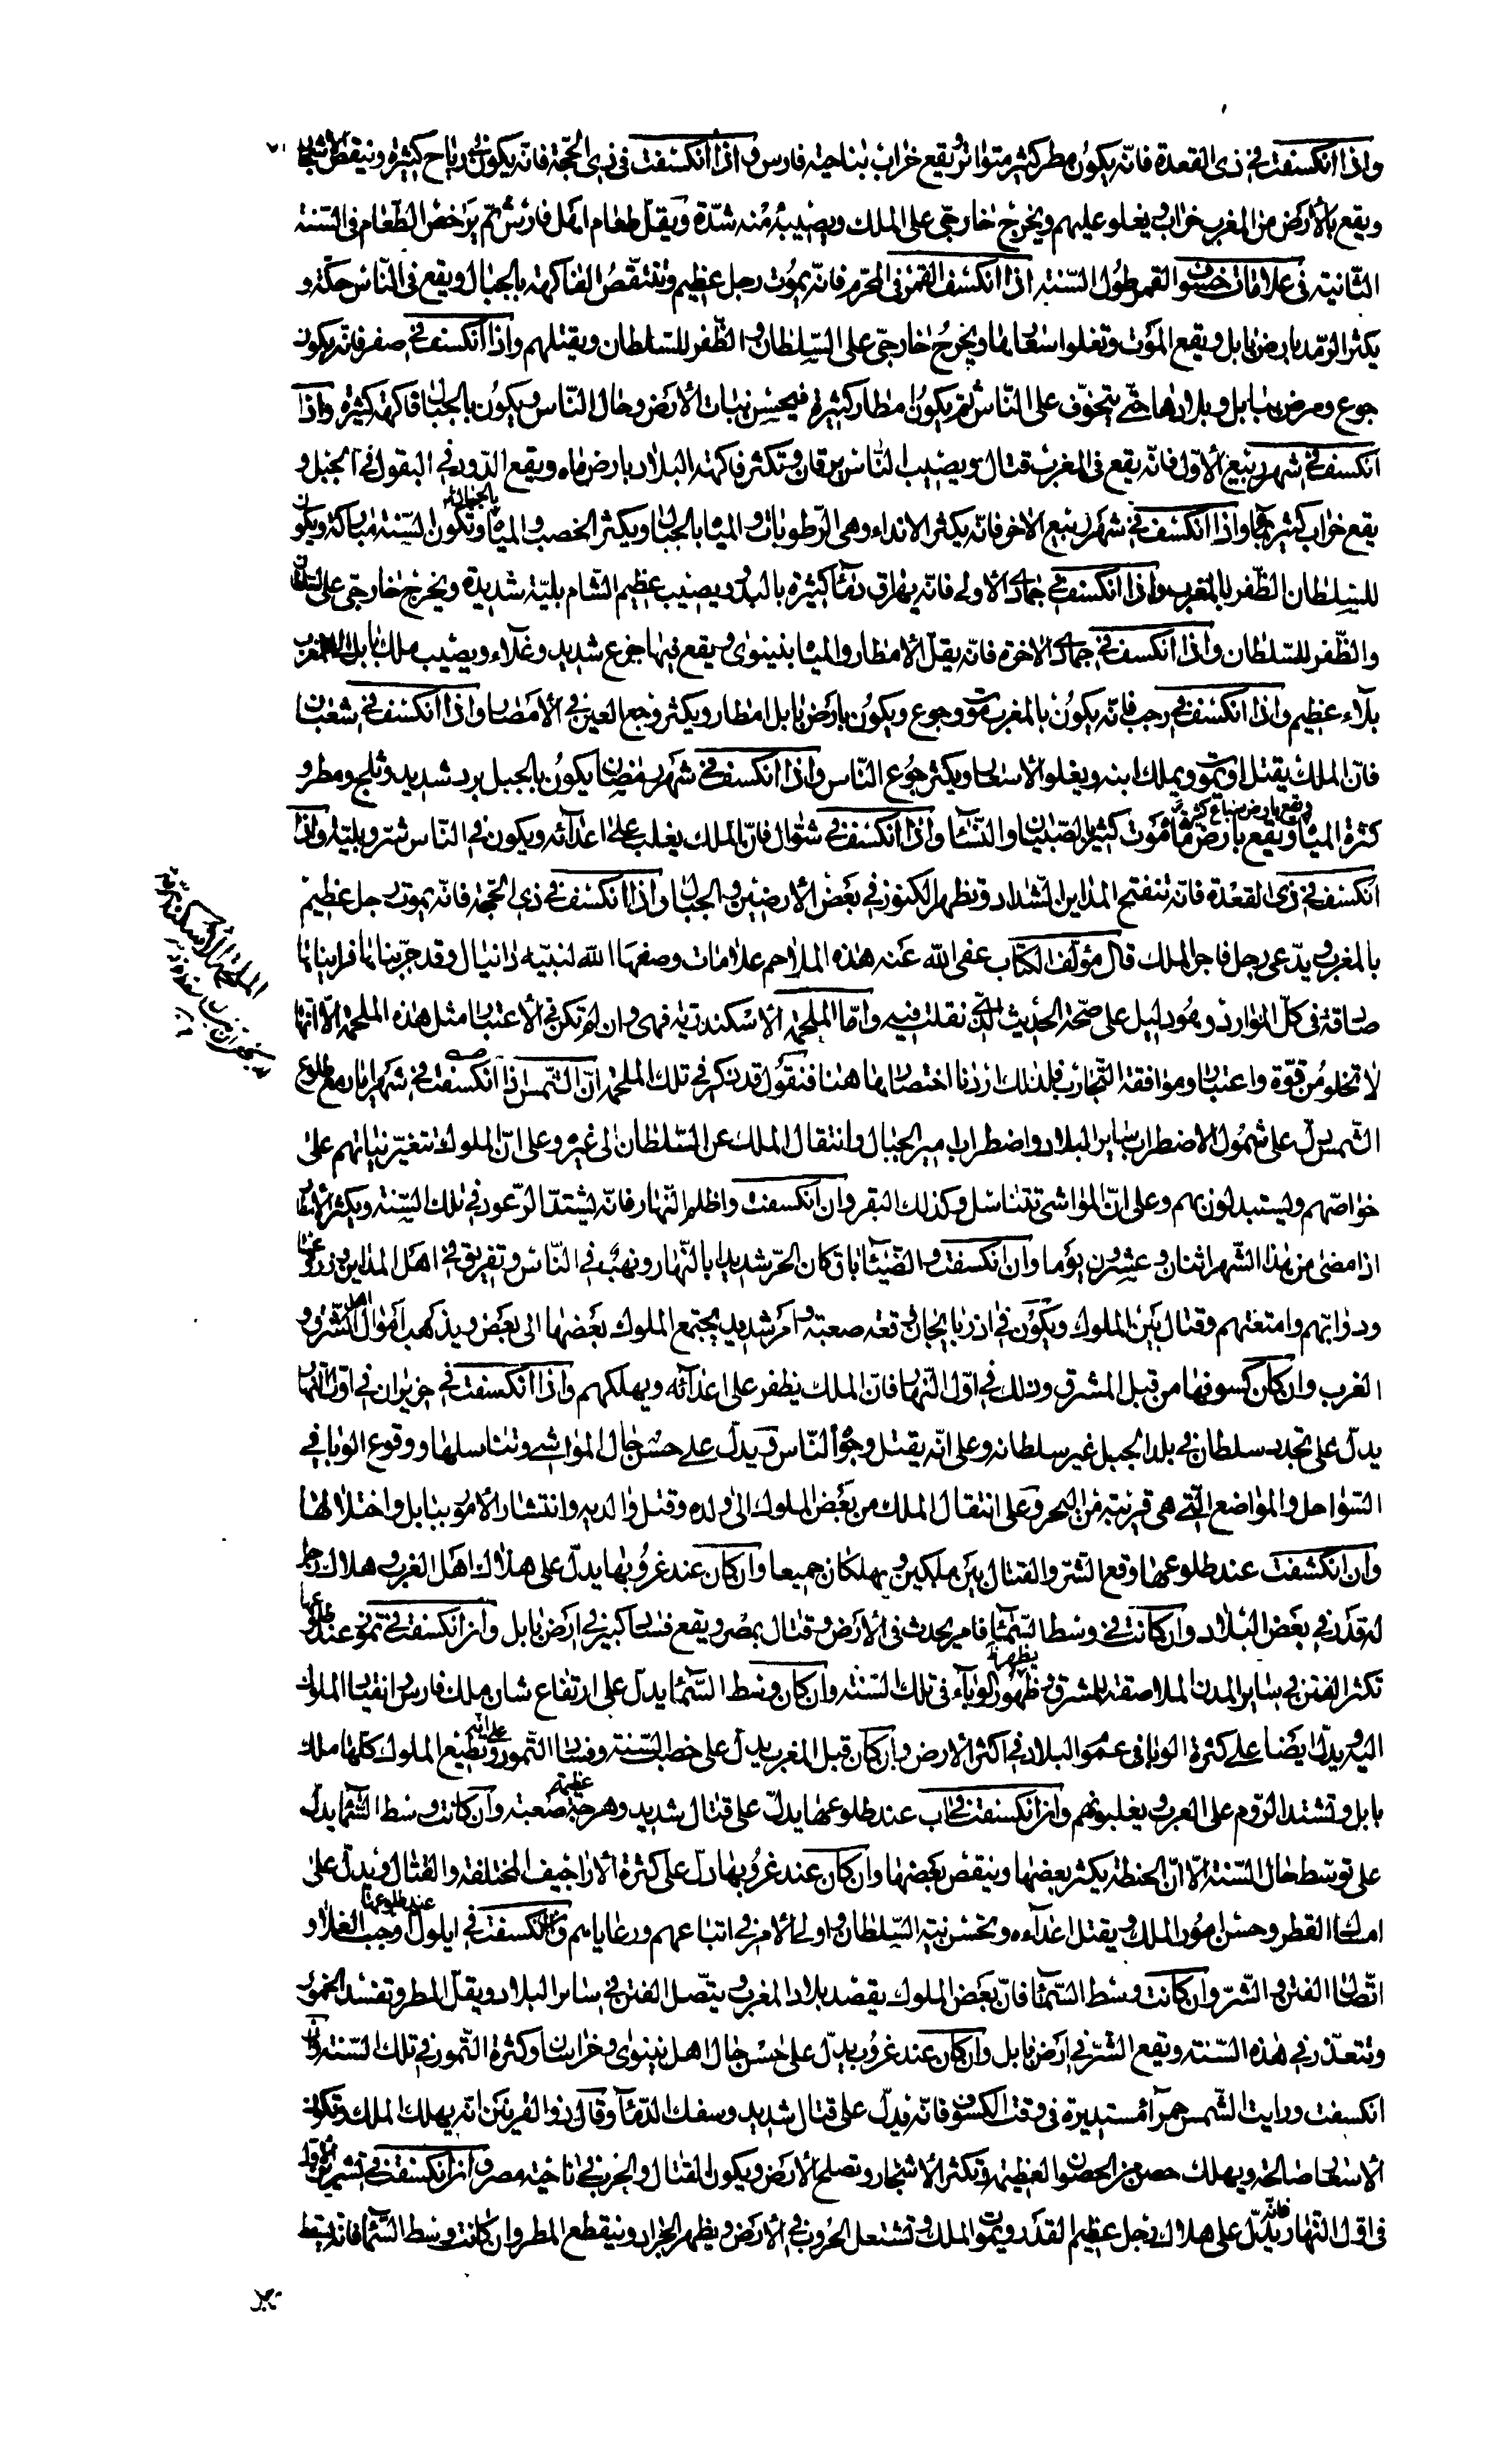 واذا انكسفت في ذي القعدة فانّه يكون مطر كثير متواتر ويقع خراب بناحية فارس واذا انكسفت في ذي الحجّة فانّه يكون رياح كثيرة وينقص الاشجار
ويقع بالأرض من المغرب خراب ويغلو عليهم ويخرج خارجيّ على الملك ويصيبه منه شدّة ويقلّ طعام اهل فارس ثم يرخص الطّعام في السّنة
الثّانية في علامات خسوف القمر طول السّنة اذا انكسف القمر في المحرّم فانّه يموت رجل عظيم وتنتقص الفاكهة بالجبال ويقع في النّاس حكّة و
يكثر الرّمد بارض بابل ويقع الموت وتغلوا اسعارها ويخرج خارجيّ على السّلطان والظّفر للسّلطان ويقتلهم واذا انكسف في صفر فانّه يكون
جوع ومرض ببابل وبلادها حتّى يتخوّف على النّاس ثم يكون امطار كثيرة فيحسن نبات الأرض وحال النّاس ويكون بالجبال فاكهة كثيرة واذا
انكسف في شهر ربيع الأوّل فانّه يقع في المغرب قتال ويصيب النّاس يرقان وتكثر فاكهة البلاد بارض ماه ويقع الدّود في البقول في الجبل و
يقع خراب كثير بها واذا انكسف في شهر ربيع الاخر فانّه يكثر الانداء وهي الرّطوبات والمياه بالجبال ويكثر الخصب والمياه وتكون السّنة مباركة ويكون
للسّلطان الظّفر بالمغرب واذا انكسف في جمادى الأولى فانّه يهراق دماء كثيرة بالبدو ويصيب عظيم الشّام بليّة شديدة ويخرج خارجيّ على السلطان
والظّفر للسّلطان واذا انكسف في جمادى الاخرة فانّه يقلّ الأمطار والمياه بنينوى ويقع فيها جوع شديد وغلاء ويصيب ملك بابل المغرب
بلاء عظيم واذا انكسف في رجب فانّه يكون بالمغرب موت وجوع ويكون بارض بابل امطار ويكثر وجع العين في الأمصار واذا انكسف في شعبان
فانّ الملك يقتل او يموت ويملك ابنه ويغلو الأسعار ويكثر جوع النّاس واذا انكسف في شهر رمضان يكون بالجبل برد شديد وثلج ومطر و
كثرة المياه ويقع بارض ماه موت كثير بالصّبيان والنّساء واذا انكسف في شوّال فانّ الملك يغلب على اعدائه ويكون في النّاس شرّ وبليّة واذا
انكسف في ذي القعدة فانّه تنفتح المداين الشّداد وتظهر الكنوز في بعض الأرضين والجبال واذا انكسف في ذي الحجّة فانّه يموت رجل عظيم
بالمغرب ويدّعي رجل فاجر الملك قال مؤلّف الكتاب عفى الله عنه هذه الملاحم علامات وصفها الله لنبيّه دانيال وقد جرّبناها فرايناها
صادقة في كلّ الموارد وهو دليل على صحّة الحديث الّتي نقلت فيه وامّا الملحمة الأسكندريّة فهي وان لم تكن في الأعتبار مثل هذه الملحمة الّا انّها
لا تخلو من قوّة واعتبار وموافقة التّجارب فلذلك اردنا اختصارها هنا فنقول قد ذكر في تلك الملحمة انّ الشّمس اذا انكسفت في شهر ايار مع طلوع
الشّمس يدلّ على شمول الاضطراب بساير البلاد واضطراب امير الجبال وانتقال الملك عن السّلطان الى غيره وعلى انّ الملوك تتغيّر نيّاتهم على
خواصّهم ويستبدلون بهم وعلى انّ المواشي تتناسل وكذلك البقر وان انكسفت واظلم النّهار فانّه يشتدّ الرّعود في تلك السّنة ويكثر الأمطار
اذا مضى من هذا الشّهر اثنان وعشرون يوما وان انكسفت والضّياء باق كان الحرّ شديدا بالنّهار ونهب في النّاس وتفريق في اهل المداين
ودوابّهم وامتعتهم وقتال بين الملوك ويكون في اذربايجان وقعة صعبة وامر شديد يجتمع الملوك بعضها الى بعض ويذهب اموال اهل الشّرق و
الغرب وان كان كسوفها من قبل المشرق وذلك في اوّل النّهار فانّ الملك يظفر على اعدائه ويهلكهم واذا انكسفت في حزيران في اوّل النّهار
يدلّ على تجدد سلطان في بلد الجبل غير سلطانه وعلى انّه يقتل وجوه النّاس ويدلّ على حسن حال المواشي وتناسلها ووقوع الوبا في
السّواحل والمواضع الّتي هي قريبة من البحر وعلى انتقال الملك من بعض الملوك الى ولده وقتل والديه وانتشار الأمور ببابل واختلافها
وان انكسفت عند طلوعها وقع الشّرّ والقتال بين ملكين ويهلكان جميعا وان كان عند غروبها يدلّ على هلاك اهل الغرب وهلاك رجل
له قدر في بعض البلاد وان كانت في وسط السّماء فامر يحدث في الأرض وقتال بمصر ويقع فساد كبير في ارض بابل وان انكسفت في تموز عند طلوعها
تكثر الفتن في ساير المدن الملاصقة للمشرق وظهور الوباء في تلك السّنة وان كان وسط السّماء يدلّ على ارتفاع شان ملك فارس وانقياد الملوك
اليه ويدلّ ايضا على كثرة الوبا في عموم البلاد في اكثر الأرض وان كان قبل المغرب يدلّ على خصب السّنة وفساد التّمور ويطيع الملوك كلّها ملك
بابل وتشتد الرّوم على العرب ويغلبونهم وان انكسفت في اب عند طلوعها يدلّ على قتال شديد وهرج عظيم صعبة وان كانت وسط السّماء يدلّ
على توسّط حال السّنة الّا انّ الحنطة يكثر بعضها وينقص بعضها وان كان عند غروبها دلّ على كثرة الأراجيف المختلفة والقتال ويدلّ على
امساك القطر وحسن امور الملك ويقتل اعداءه وتحسن نيّة السّلطان واولي الأمر في اتباعهم ورعاياهم وان انكسفت في ايلول عند طلوعها وجب الغلاء و
اتّصال الفتن والشّرّ وان كانت وسط السّماء فانّ بعض الملوك يقصد بلاد المغرب ويتّصل الفتن في ساير البلاد ويقلّ المطر وتفسد الخمور
وتتعذّر في هذه السّنة ويقع الشّرّ في ارض بابل وان كان عند غروب يدلّ على حسن حال اهل نينوى وخراسان وكثرة التّمور في تلك السّنة وان
انكسفت ورايت الشّمس حمراء مستديرة في وقت الكسوف فانّه يدلّ على قتال شديد وسفك الدّماء وقال ذو القرنين انّه يهلك الملك وتكون
الأسعار صالحة ويهلك حصن من الحصون العظيمة وتكثر الأشجار وتصلح الأرض ويكون القتال والحرب في ناحية مصر وان انكسفت في تشرين الأوّل
في اوّل النّهار فانّه يدلّ على هلاك رجل عظيم القدر ويموت الملك وتشتعل الحروب في الأرض ويظهر الجراد وينقطع المطر وان كانت وسط السّماء فانّه يسقط
الملحمة الأسكندريّة